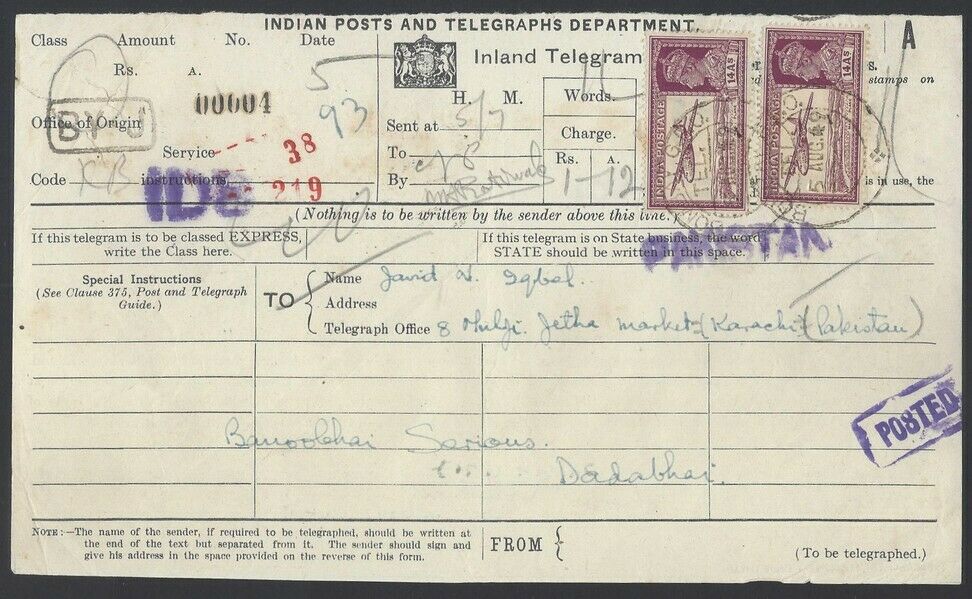 INDIAN POSTS AND TELEGRAPHS DEPARTMENT.
Class Amount No. Date
Rs. A.
Inland Telegram
A
stamps on
00004
5
93
H. M.
Words.
11
Office of Origin
BY
Sent at 5/7
Charge.
Service
38
To
Rs. A.
Code XB instructions,
219
By
1-12
is in use, the
(Nothing is to be written by the sender above this line.)
INDIA POSTAGE 14AS
INDIA POSTAGE 14AS
5 AUG 49
If this telegram is to be classed EXPRESS,
write the Class here.
If this telegram is on State business, the word
STATE should be written in this space.
PAKISTAN
Special Instructions
(See Clause 375, Post and Telegraph
Guide.)
TO
Name Javid N. Iqbal.
Address
Telegraph Office 8 Philji Jetha Market (Karachi) (Pakistan)
POSTED
Banoobhai Serious.
Dadabhai.
NOTE:—The name of the sender, if required to be telegraphed, should be written at
the end of the text but separated from it. The sender should sign and
give his address in the space provided on the reverse of this form.
FROM
(To be telegraphed.)